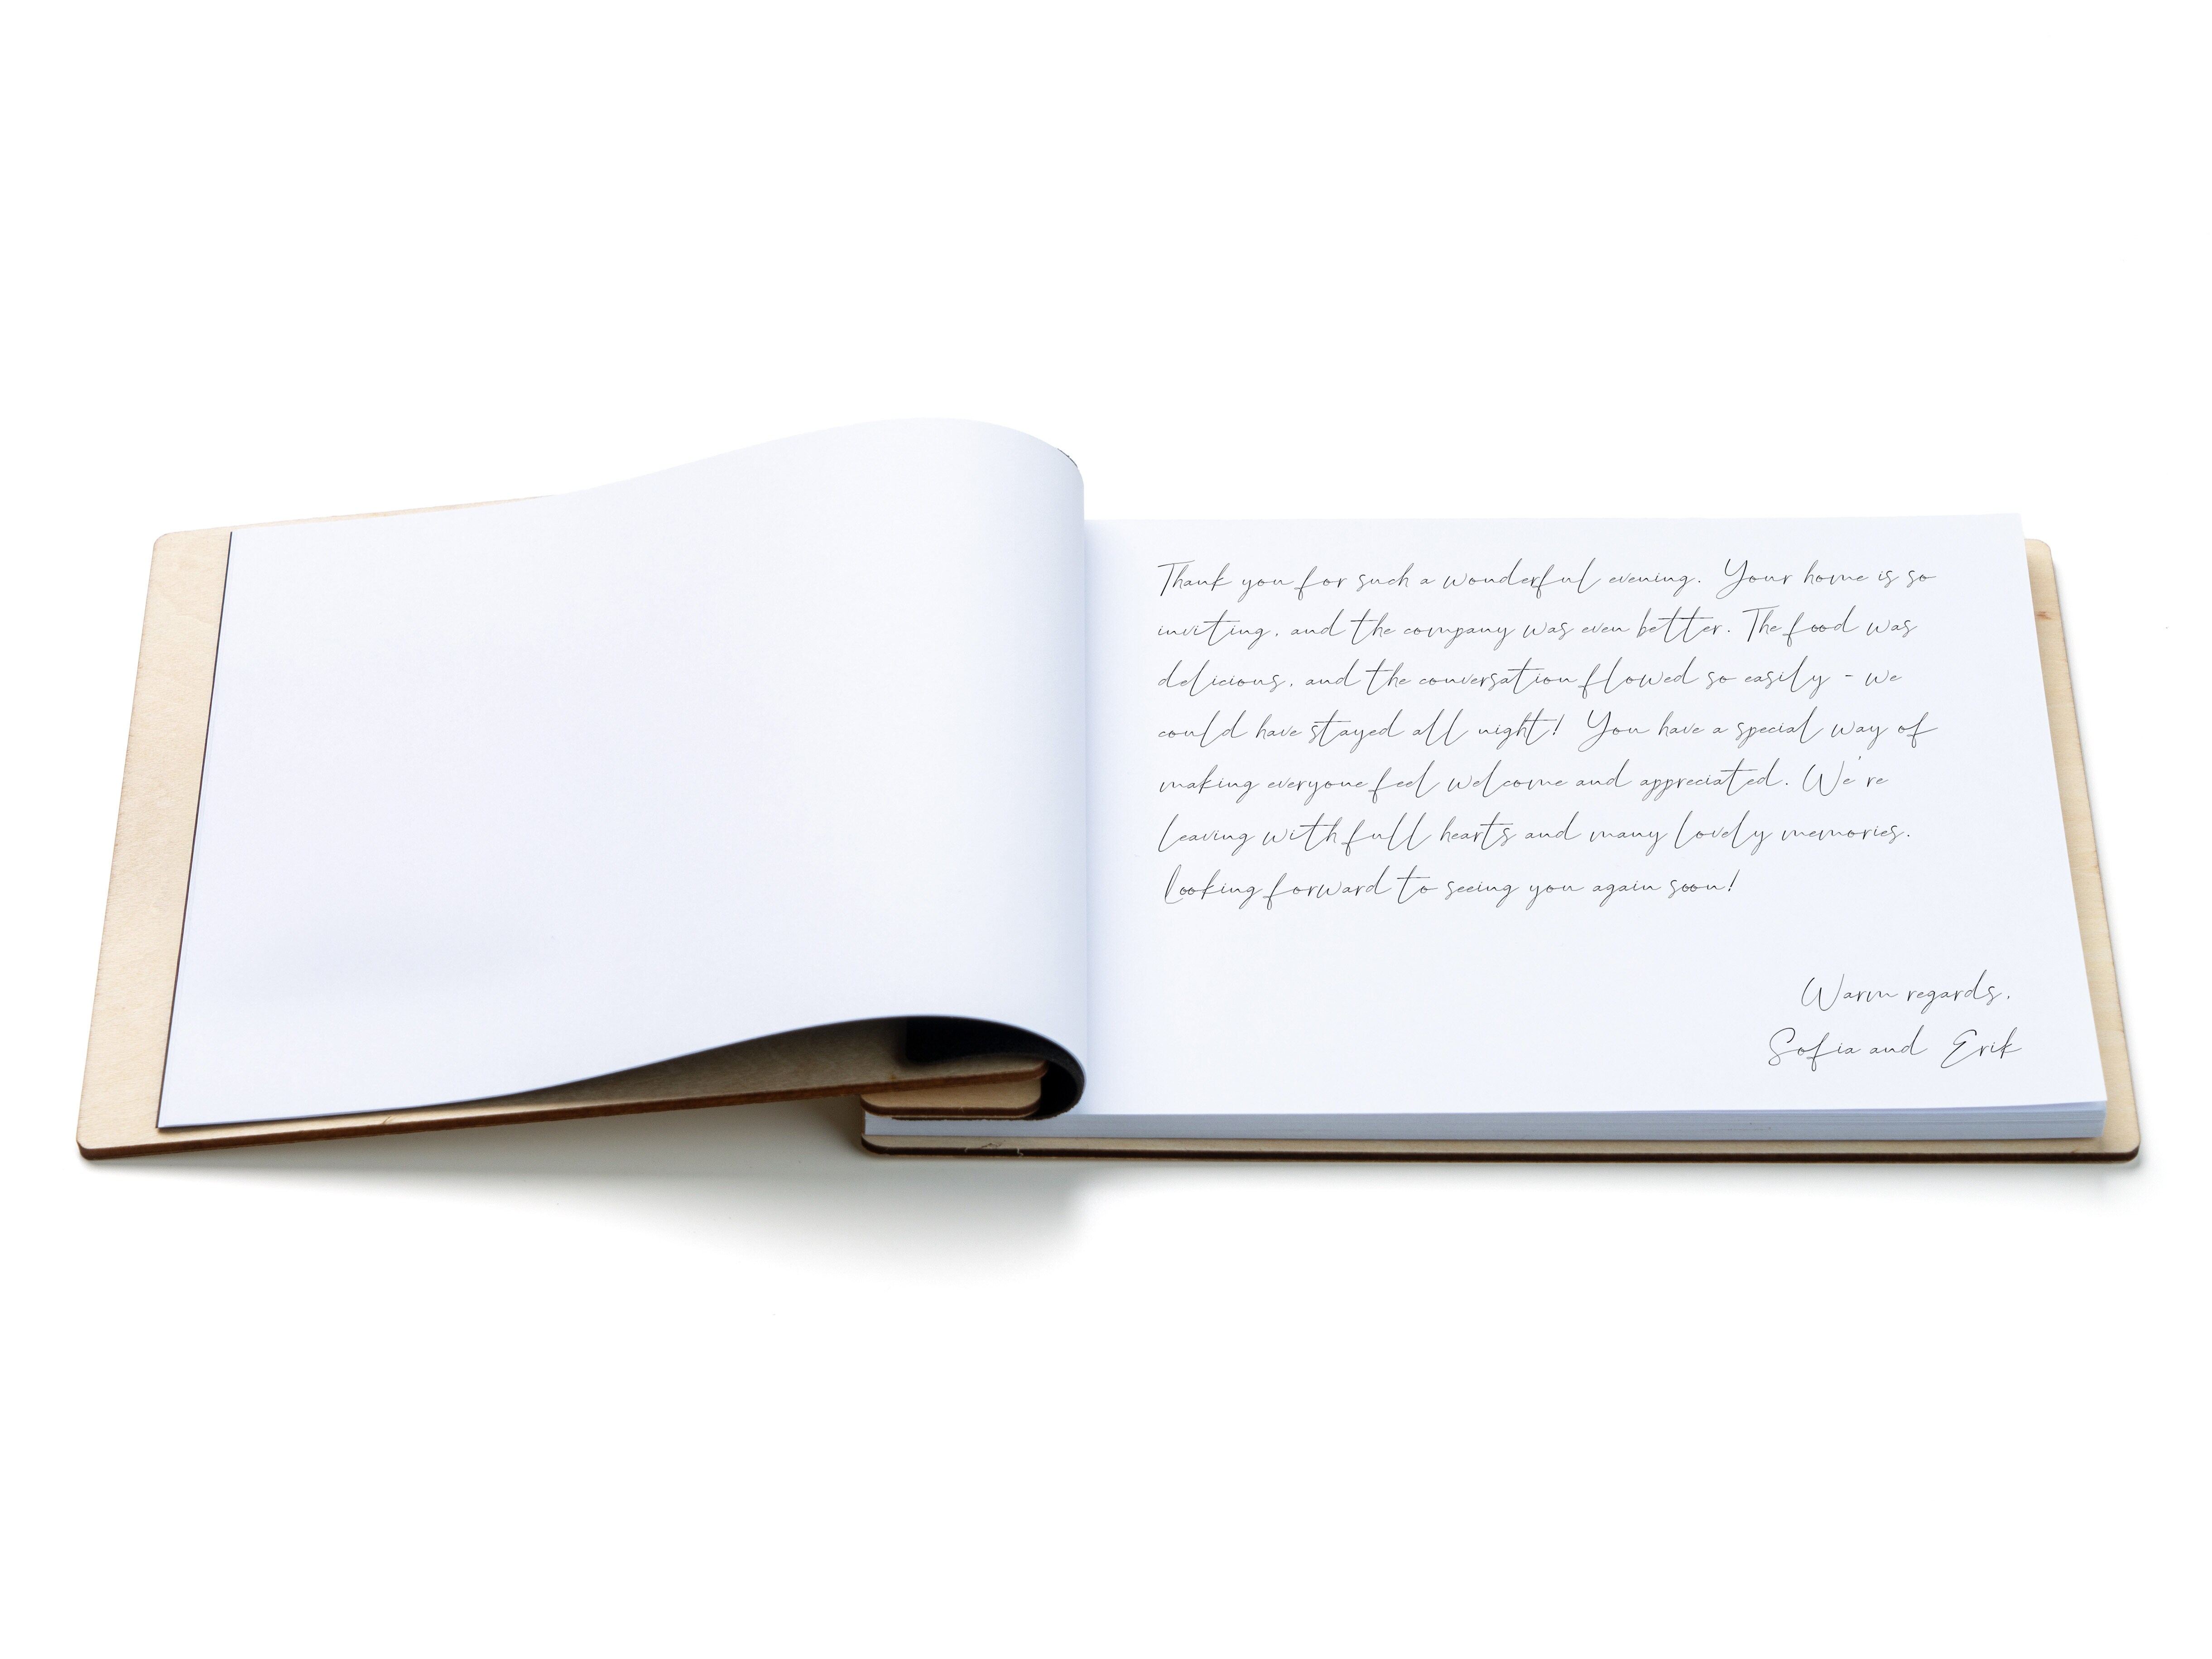 Thank you for such a wonderful evening. Your home is so
inviting, and the company was even better. The food was
delicious, and the conversation flowed so easily - we
could have stayed all night! You have a special way of
making everyone feel welcome and appreciated. We're
leaving with full hearts and many lovely memories.
Looking forward to seeing you again soon!
Warm regards,
Sofia and Erik